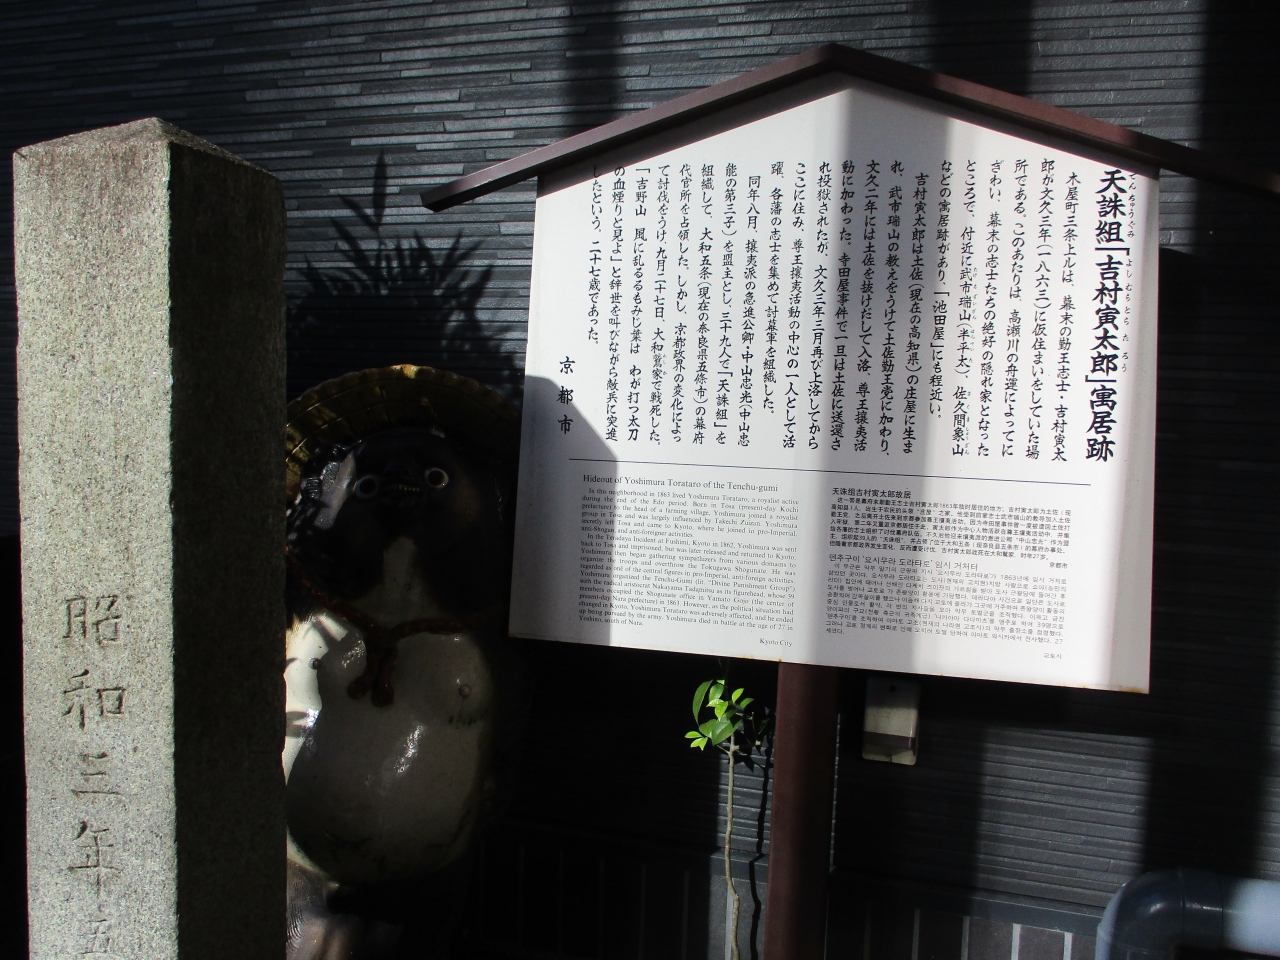 天誅組「吉村寅太郎」寓居跡
てんちゅうぐみ よしむらとらたろう
木屋町三条上ルは、幕末の勤王志士・吉村寅太
郎が文久三年(一八六三)に仮住まいをしていた場
所である。このあたりは、高瀬川の舟運によってに
ぎわい、幕末の志士たちの絶好の隠れ家となった
ところで、付近に武市瑞山(半平太)、佐久間象山
などの寓居跡があり、「池田屋」にも程近い。
吉村寅太郎は土佐(現在の高知県)の庄屋に生ま
れ、武市瑞山の教えをうけて土佐勤王党に加わり、
文久二年には土佐を抜けだして入洛、尊王攘夷活
動に加わった。寺田屋事件で一旦は土佐に送還さ
れ投獄されたが、文久三年三月再び上洛してから
ここに住み、尊王攘夷活動の中心の一人として活
躍、各藩の志士を集めて討幕軍を組織した。
同年八月、攘夷派の急進公卿・中山忠光(中山忠
能の第三子)を盟主とし、三十九人で「天誅組」を
組織して、大和五条(現在の奈良県五條市)の幕府
代官所を占領した。しかし、京都政界の変化によっ
て討伐をうけ、九月二十七日、大和鷲家で戦死した。
「吉野山 風に乱るるもみじ葉は わが打つ太刀
の血煙りと見よ」と辞世を叫びながら敵兵に突進
したという。二十七歳であった。
京都市
Hideout of Yoshimura Torataro of the Tenchu-gumi
In this neighborhood in 1863 lived Yoshimura Torataro, a royalist active
during the end of the Edo period. Born in Tosa (present-day Kochi
prefecture) to the head of a farming village, Yoshimura joined a royalist
group in Tosa and was largely influenced by Takechi Zuizan. Yoshimura
secretly left Tosa and came to Kyoto, where he joined in pro-Imperial,
anti-Shogun and anti-foreigner activities.
In the Teradaya Incident at Fushimi, Kyoto in 1862, Yoshimura was sent
back to Tosa and imprisoned, but was later released and returned to Kyoto.
Yoshimura then began gathering sympathizers from various domains to
organize the troops and overthrow the Tokugawa Shogunate. He was
regarded as one of the central figures in pro-Imperial, anti-foreign activities.
Yoshimura organized the Tenchu-Gumi (lit. "Divine Punishment Group")
with the radical aristocrat Nakayama Tadamitsu as its figurehead, whose 39
members occupied the Shogunate office in Yamato Gojo (the center of
present-day Nara prefecture) in 1863. However, as the political situation had
changed in Kyoto, Yoshimura Torataro was adversely affected, and he ended
up being pursued by the army. Yoshimura died in battle at the age of 27 in
Yoshino, south of Nara.
Kyoto City
天诛组吉村寅太郎故居
京都市
덴추구미 '요시무라 도라타로' 임시 거처터
교토시
昭和三年五